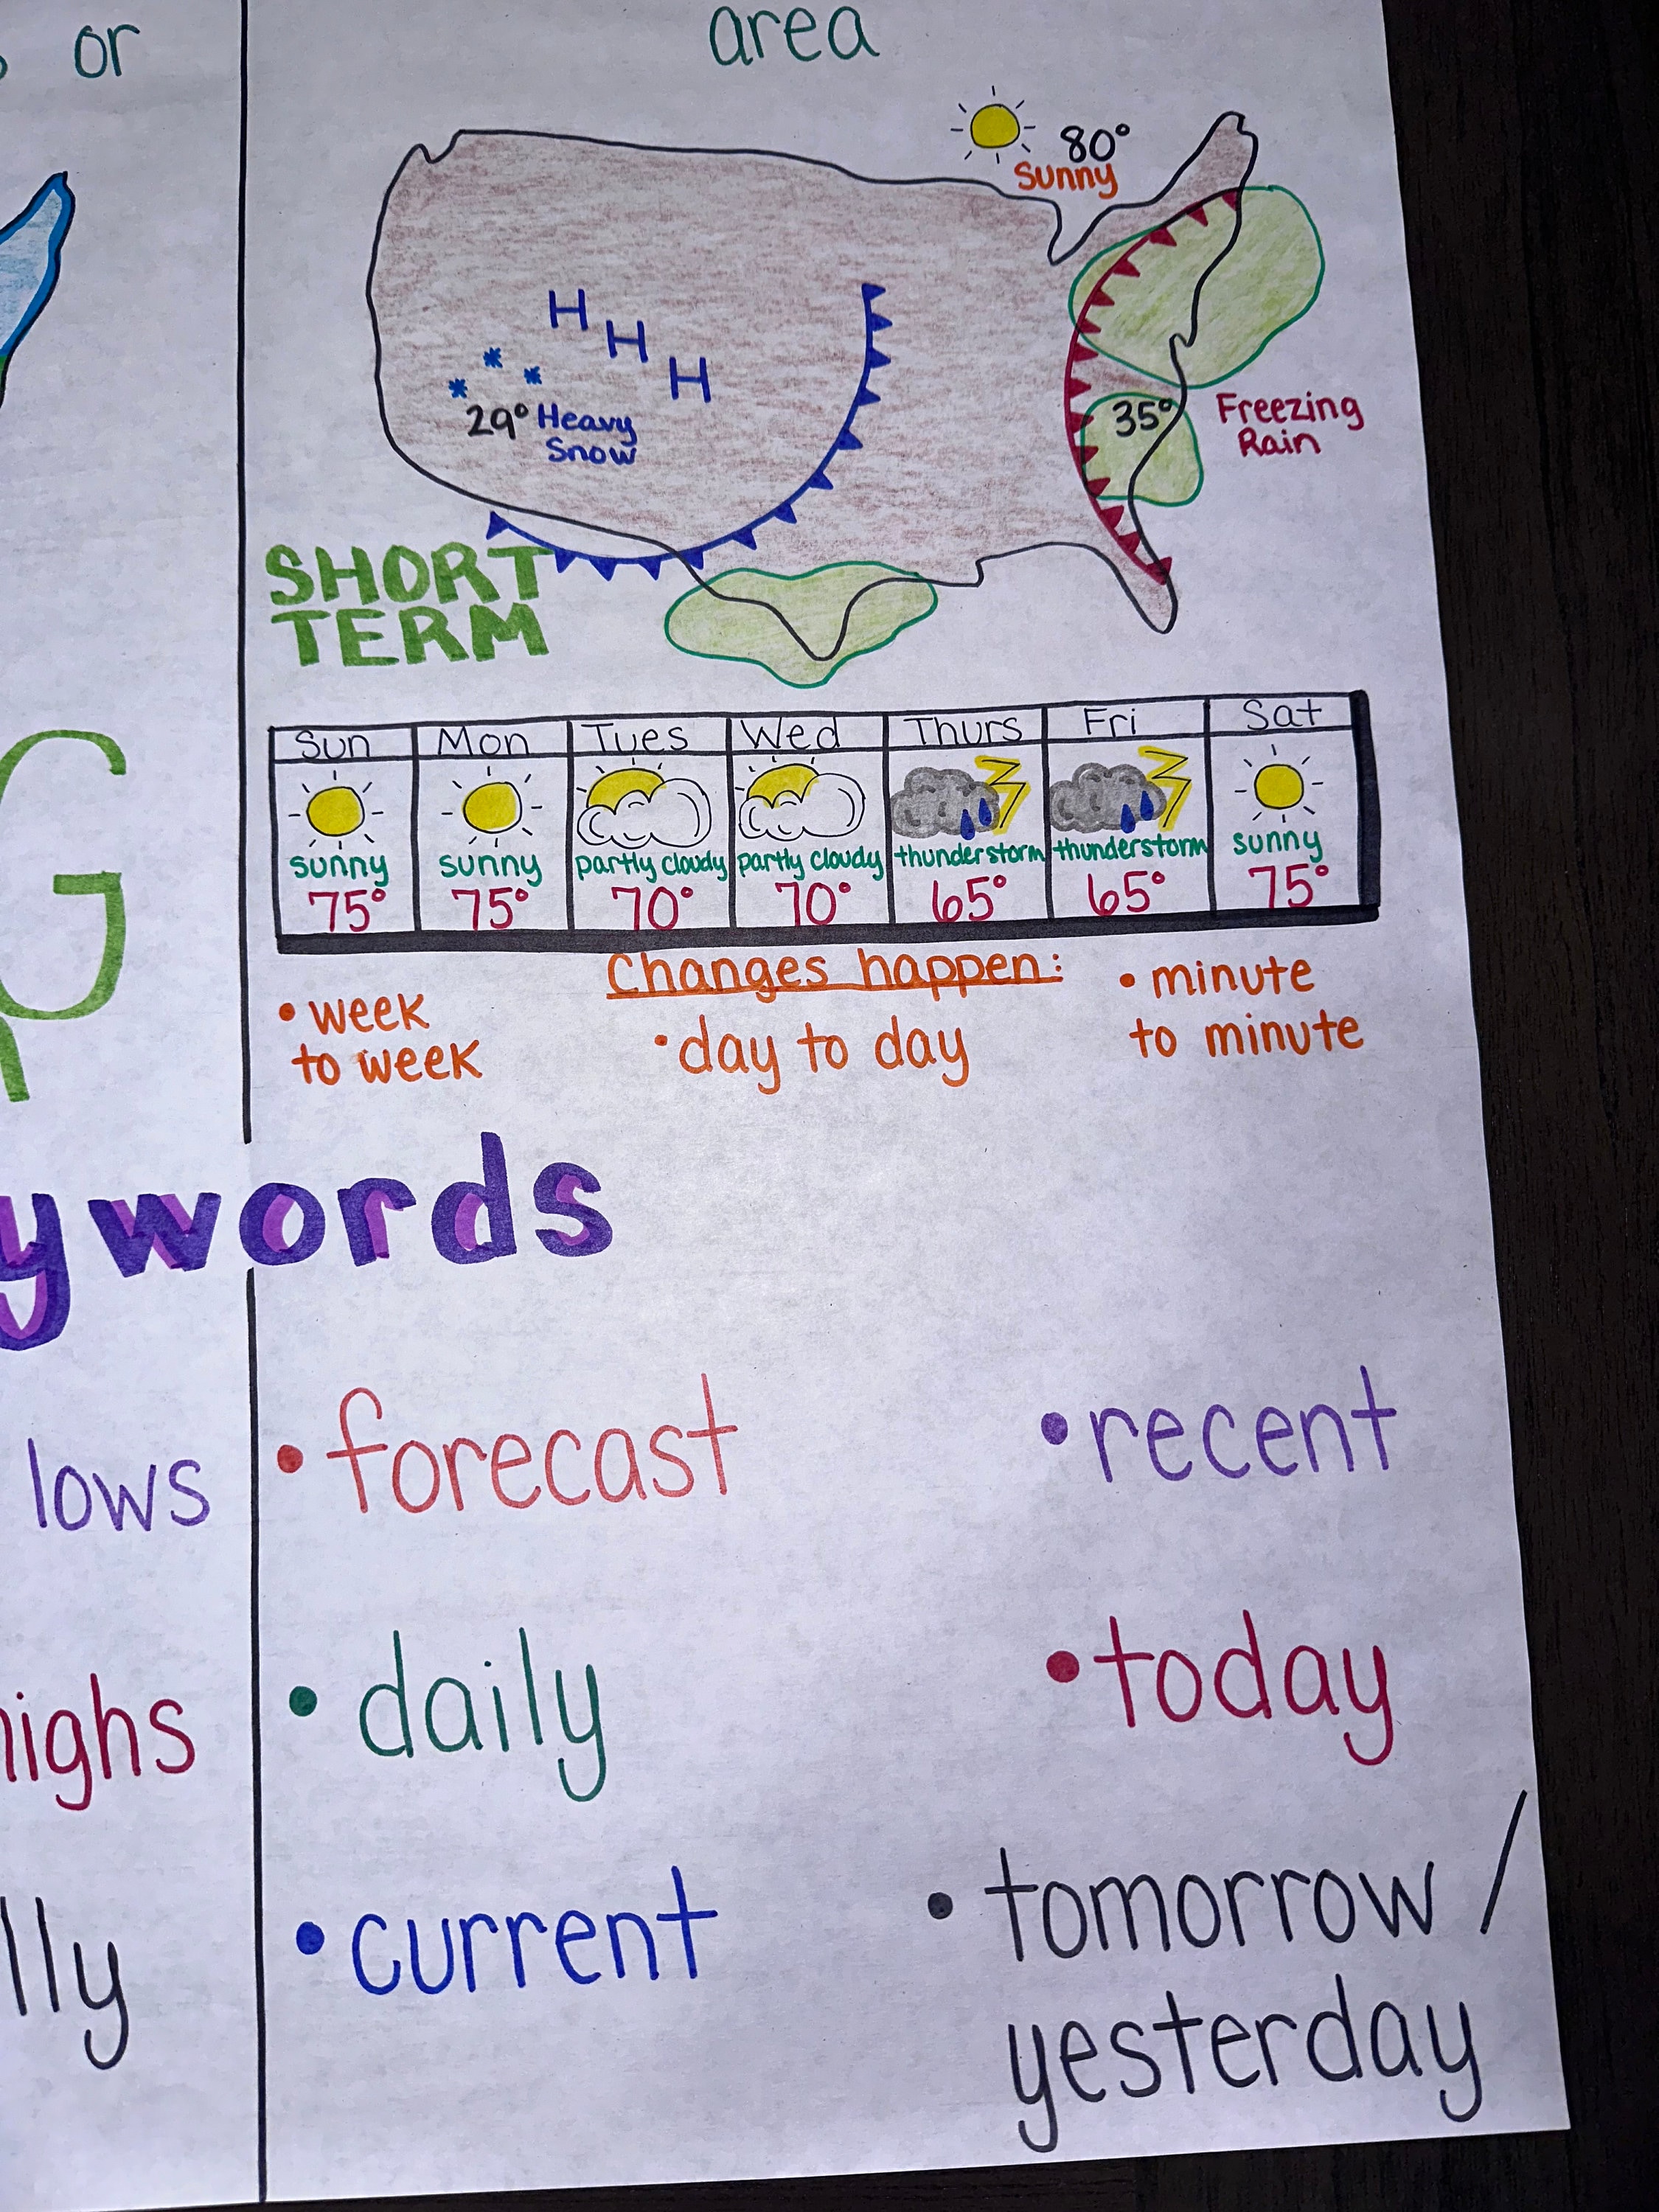 or
area
80°
Sunny
H
H
H
29° Heavy
Snow
35°
Freezing
Rain
SHORT
TERM
Sun Mon Tues Wed Thurs Fri Sat
sunny sunny partly cloudy partly cloudy thunderstorm thunderstorm sunny
75° 75° 70° 70° 65° 65° 75°
Changes happen:
• week
to week
• day to day
• minute
to minute
G
ywords
lows
highs
lly
• forecast
• recent
• daily
• today
• current
• tomorrow /
yesterday